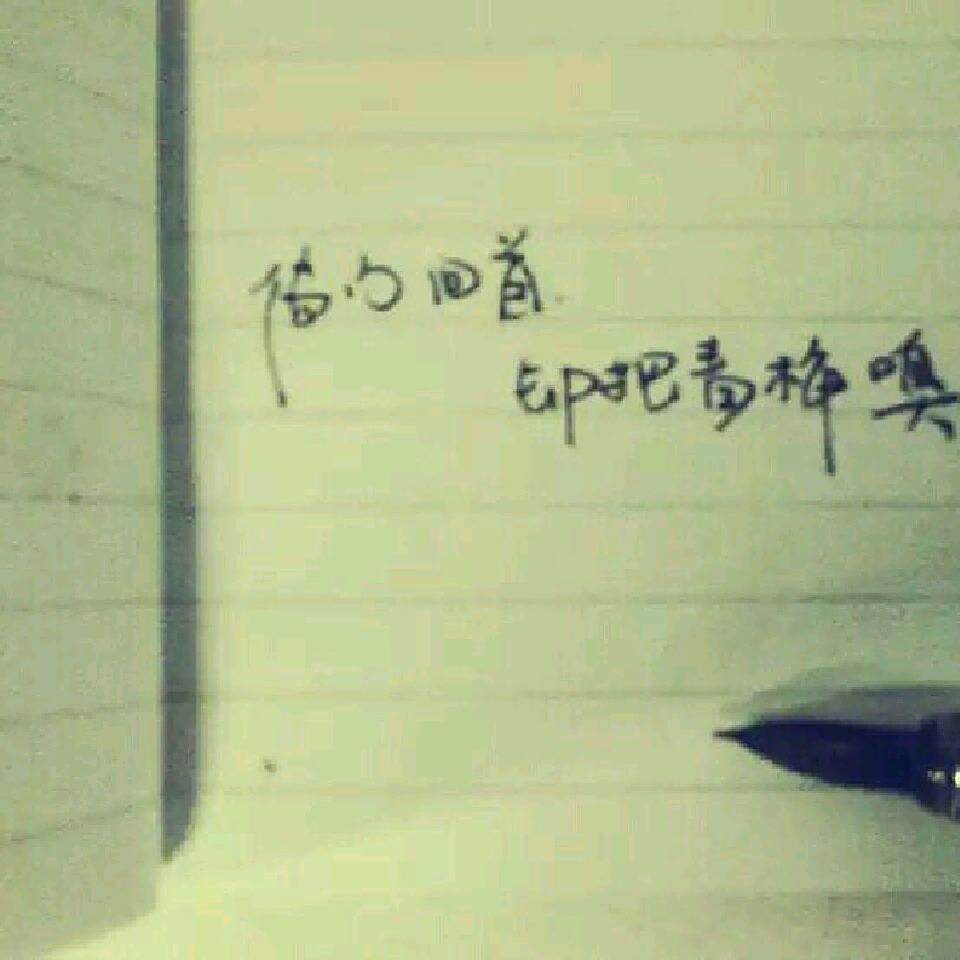 倚门回首.
却把青梅嗅